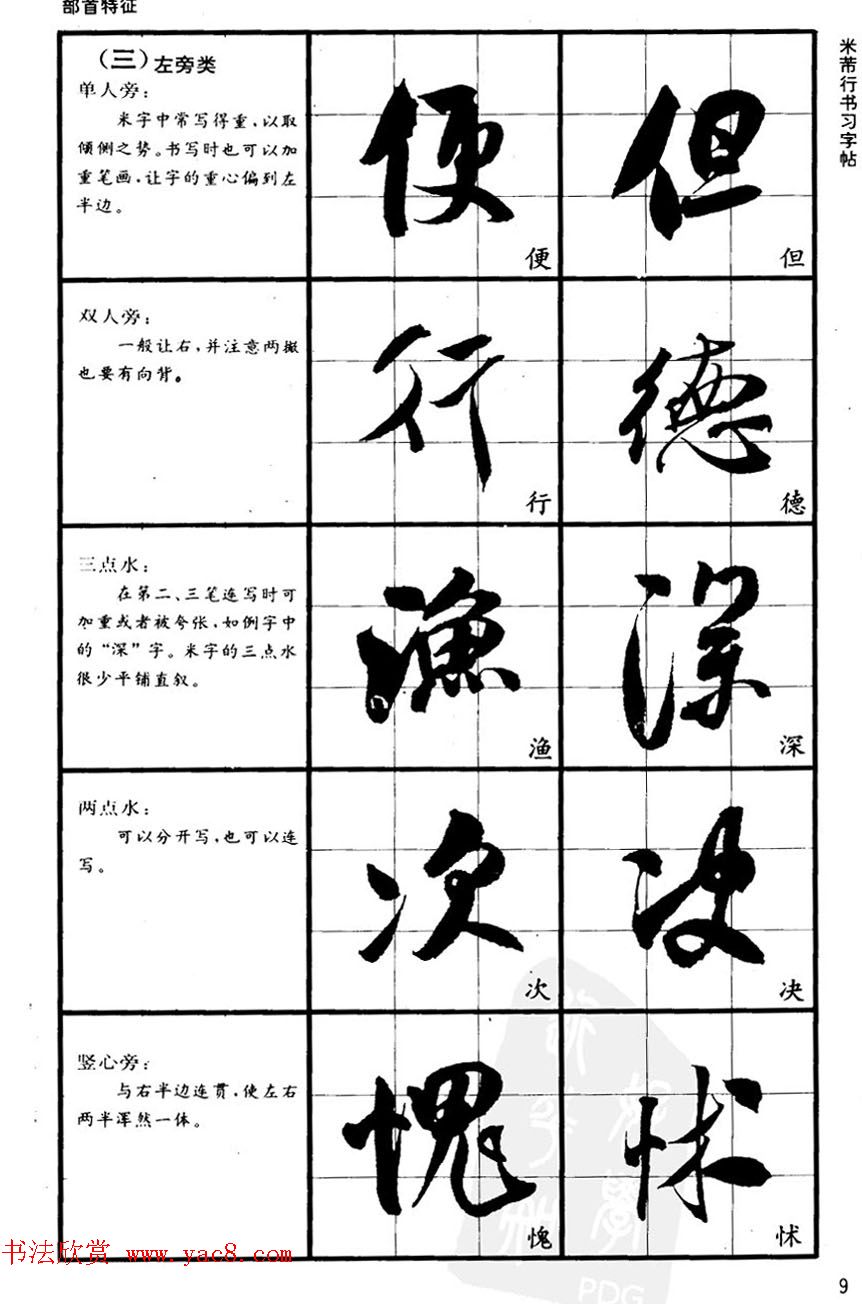 部首特征
米芾行书习字帖
（三）左旁类
单人旁：
米字中常写得重，以取
倾侧之势。书写时也可以加
重笔画，让字的重心偏到左
半边。
便
便
但
但
双人旁：
一般让右，并注意两撇
也要有向背。
行
行
德
德
三点水：
在第二、三笔连写时可
加重或者被夸张，如例字中
的“深”字。米字的三点水
很少平铺直叙。
渔
渔
深
深
两点水：
可以分开写，也可以连
写。
次
次
决
决
竖心旁：
与右半边连贯，使左右
两半浑然一体。
愧
愧
怵
怵
书法欣赏 www.yac8.com
PDG
9